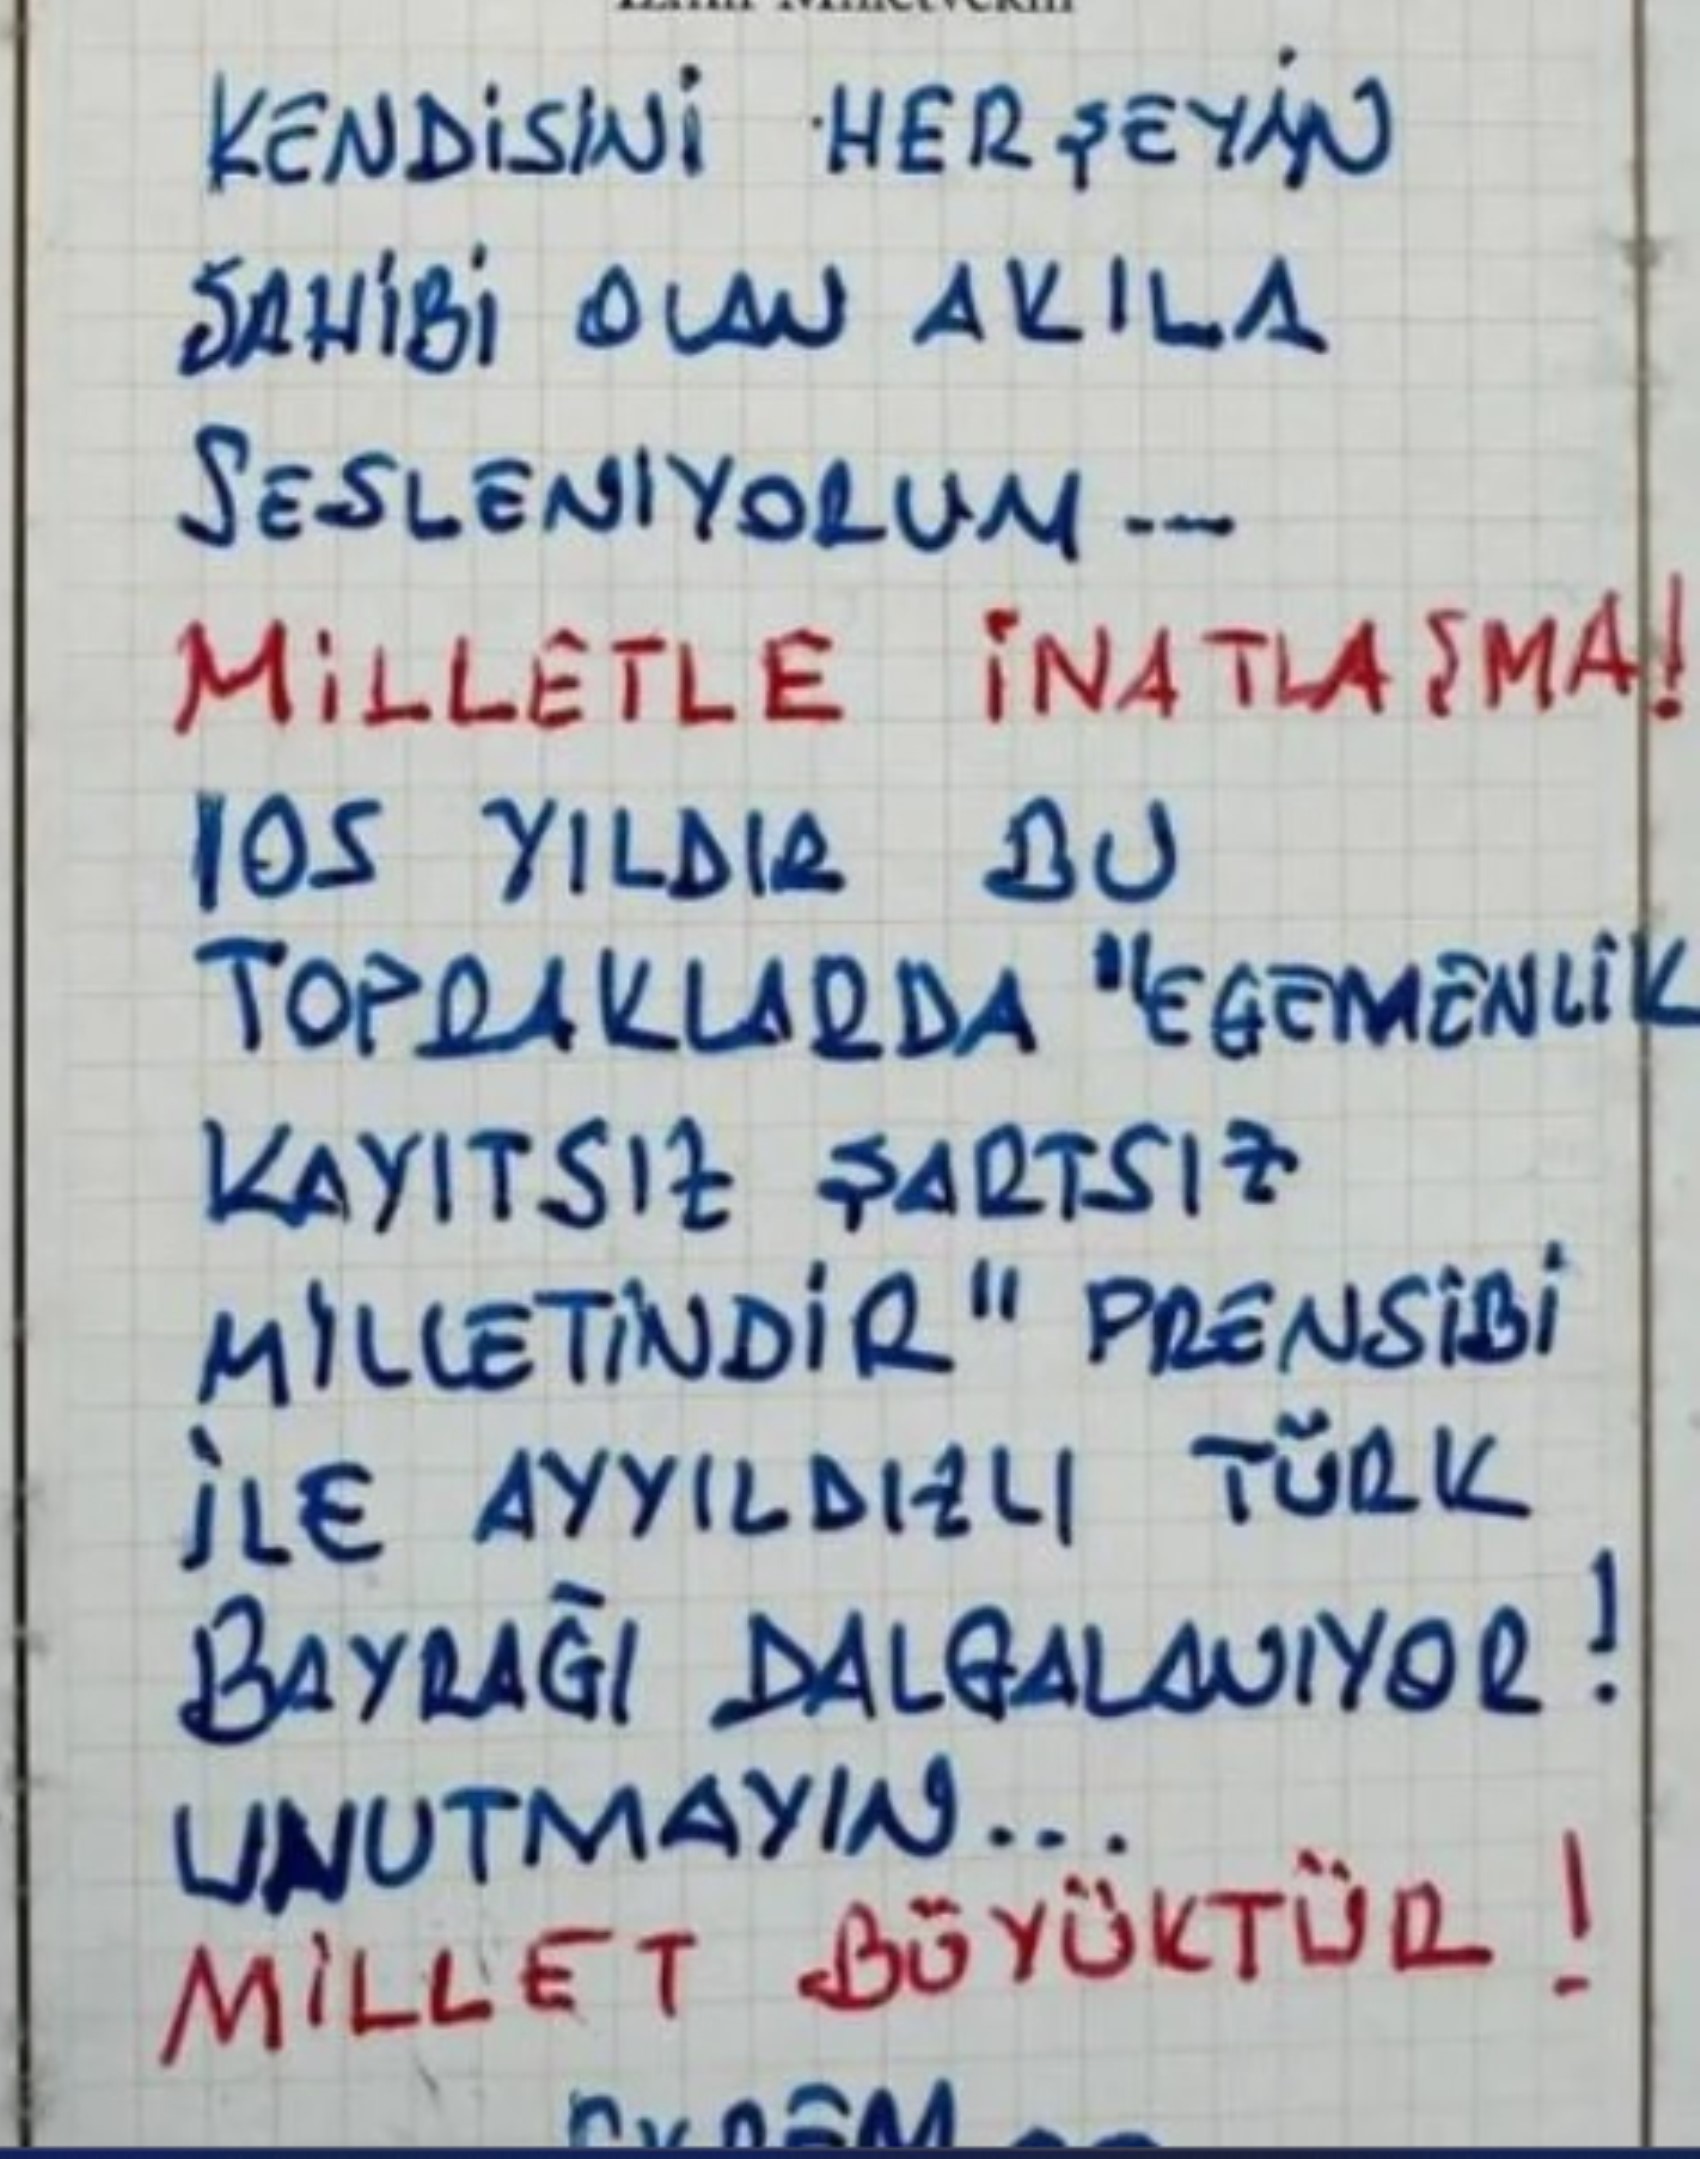 İzmir Milletvekili
KENDİSİNİ HERŞEYİN
SAHİBİ OLAN AKILA
SESLENIYORUM ---
MİLLETLE İNATLAŞMA!
105 YILDIR BU
TOPRAKLARDA "EGEMENLİK
KAYITSIZ ŞARTSIZ
MİLLETİNDİR" PRENSİBİ
İLE AYYILDIZLI TÜRK
BAYRAĞI DALGALANIYOR!
UNUTMAYIN...
MİLLET BÜYÜKTÜR!
EKREM